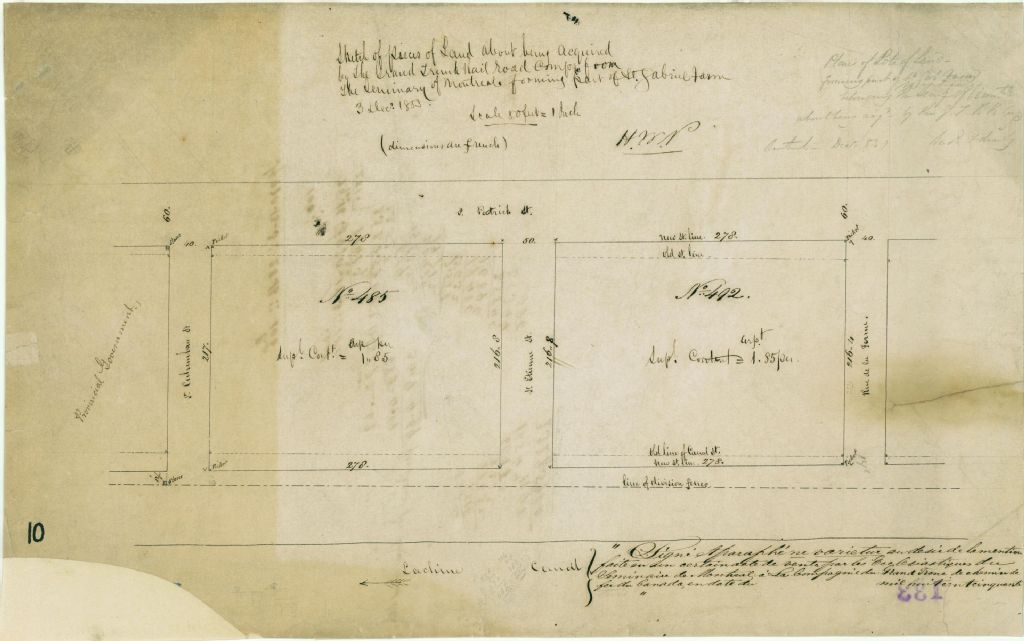 Sketch of pieces of Land about being Acquired
by The Grand Trunk Rail Road Compy from
The Seminary of Montreal forming part of St. Gabriel Farm
3 Decr. 1853.
Scale 80 feet = 1 Inch
(dimensions are french)
H.W.N
Plan of Lots of Land
forming part of St. Gab. Farm
about being acq. by the G. T. R. R.
Decr. 53
60.
S. Patrick St.
60.
40.
278
50.
New St. line. 278.
40.
Old St. line
No. 485
No. 492.
Provincial Government,
S. Columban St
217.
Supl. Cont. = 1.85
arp per
216.8
St. Etienne St.
216.8
arpt
Supl. Content = 1.85 per.
216.4
Rue de la Ferme.
278.
Old line of Canal St.
New St. line. 278.
line of division fence
10
Lachine Canal
" Signé & paraphé ne varietur au désir de la mention
faite en un certain acte de vente, par les Ecclésiastiques du
Séminaire de Montréal, à la Compagnie du Grand Tronc de chemin de
fer du Canada, en date de mil huit cent cinquante
"
133